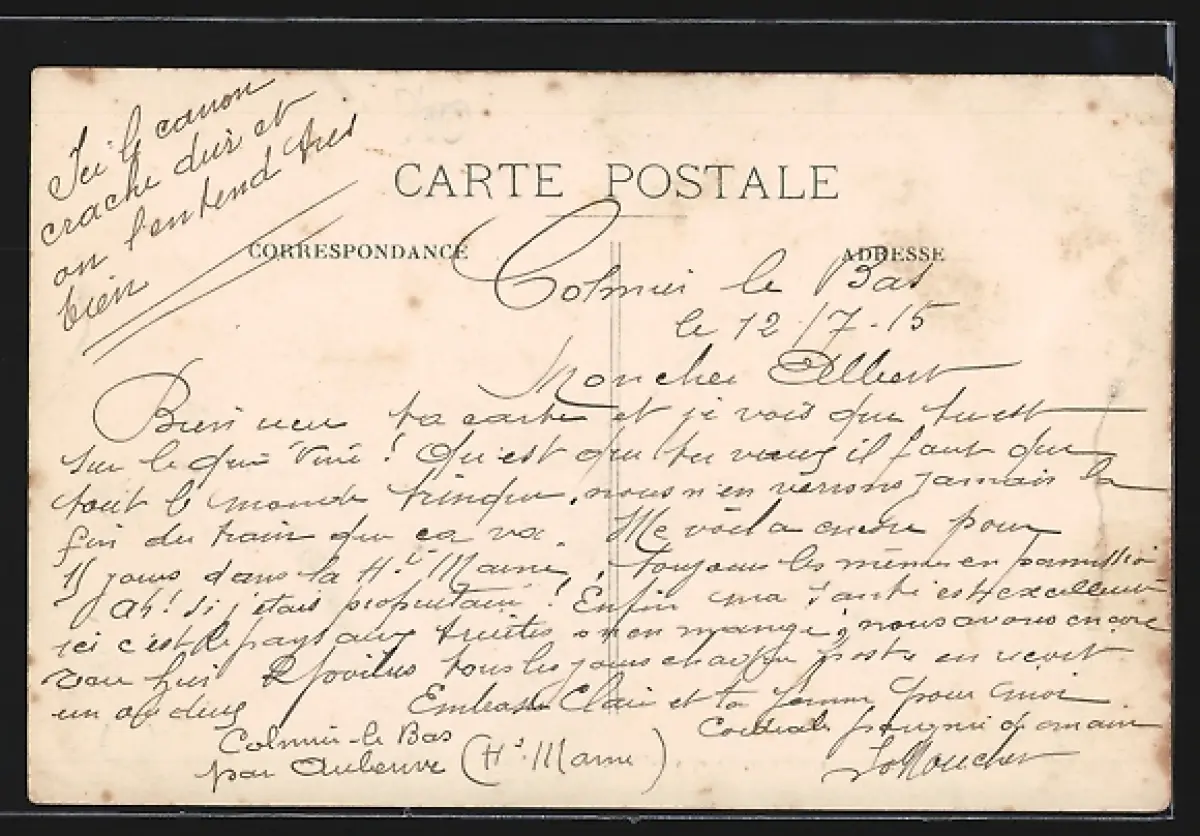 Ici le canon
crache dur et
on l'entend très
bien
CARTE POSTALE
CORRESPONDANCE
ADRESSE
Colmier le Bas
le 12/7-15
Mon cher Albert
Bien reçu ta carte et je vois que tu est
sur le qui vive! Qu'est que tu veux il faut que
tout le monde trinque, nous n'en verrons jamais la
fin du train que ça va. Me voila encore pour
15 jours dans la Hte Marne, toujours les mêmes en permission
Ah! si j'étais propriétaire! Enfin ma santé est excellente
ici c'est le pays aux truites on en mange, nous avons encore
hier poilus tous les jours chaque poste en reçoit
un ou deux
Embrasse Clair et ta femme pour moi
Cordiale poignée de main
Colmier-le Bas
par Auberive (Hte Marne)